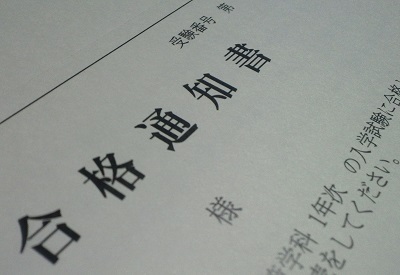 受験番号 第
合格通知書
様
学科 1年次 の入学試験に合格
をしてください。